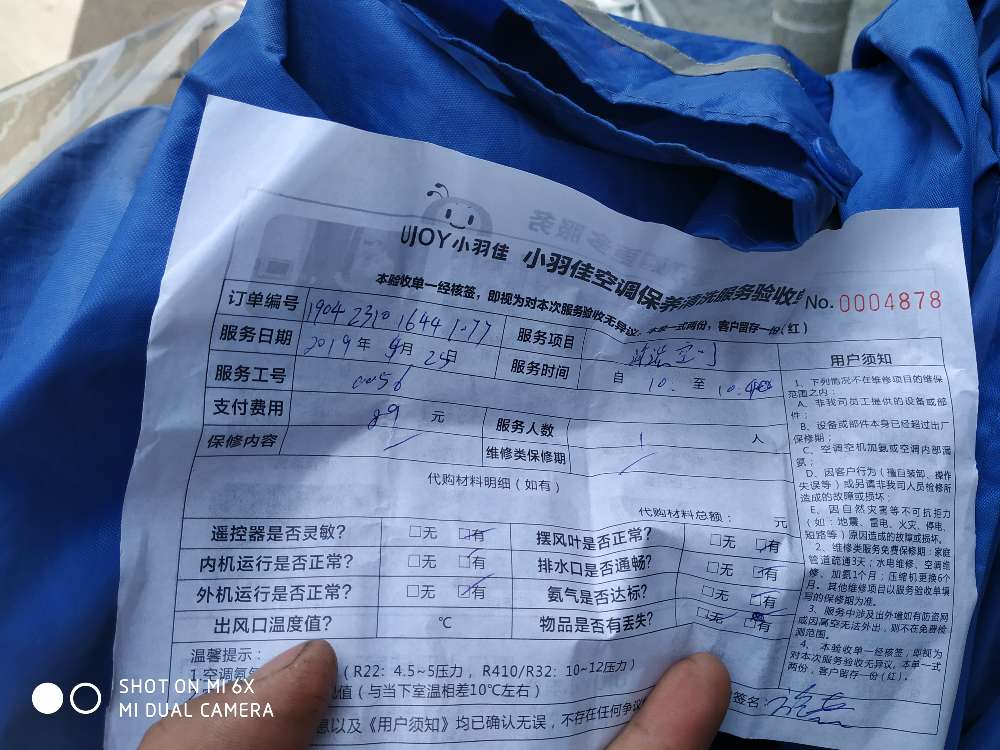 UJOY小羽佳 小羽佳空调保养清洗服务验收单 No. 0004878
本验收单一经核签，即视为对本次服务验收无异议，本单一式两份，客户留存一份(红)
订单编号 服务项目
服务日期 2019年 月 25日 服务时间 自 10. 至
服务工号 0056
支付费用 89 元 服务人数 1 人
保修内容 维修类保修期
代购材料明细（如有）
代购材料总额： 元
遥控器是否灵敏？ □无 □有 摆风叶是否正常？ □无 □有
内机运行是否正常？ □无 □有 排水口是否通畅？ □无 □有
外机运行是否正常？ □无 □有 氨气是否达标？ □无 □有
出风口温度值？ ℃ 物品是否有丢失？ □无 □有
用户须知
1、下列情况不在维修项目的维保
范围之内：
A、非我司员工提供的设备或部
件；
B、设备或部件本身已经超过出厂
保修期；
C、空调空机加氨或空调内部漏
氨；
D、因客户行为（擅自装卸、操作
失误等）或另请非我司人员检修所
造成的故障或损坏；
E、因自然灾害等不可抗拒力
（如：地震、雷电、火灾、停电、
短路等）原因造成的故障或损坏。
2、维修类服务免费保修期：家庭
管道疏通3天；水电维修、空调维
修、加氨1个月；压缩机更换6个
月，其他维修项目以服务验收单填
写的保修期为准。
3、服务中涉及出外墙如有防盗网
或因高空无法外出，则不在免费检
测范围。
4、本验收单一经核签，即视为
对本次服务验收无异议，本单一式
两份，客户留存一份(红)。
温馨提示：
1.空调氨气 （R22：4.5~5压力，R410/R32：10~12压力）
值（与当下室温相差10℃左右）
息以及《用户须知》均已确认无误，不存在任何争议
签名：
SHOT ON MI 6X
MI DUAL CAMERA